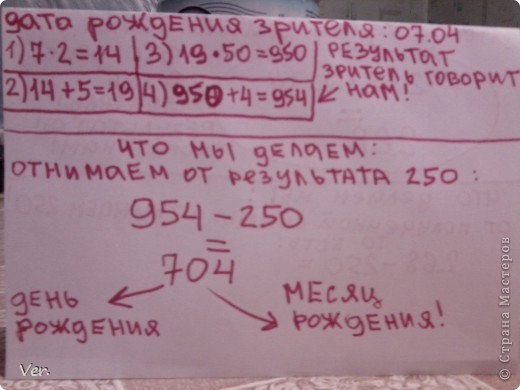 дата рождения зрителя: 07.04
1) 7•2=14
2) 14+5=19
3) 19•50=950
4) 950+4=954
результат
зритель говорит
нам!
что мы делаем:
отнимаем от результата 250:
954-250
=
704
день
рождения
месяц
рождения!
Ven.
© Страна Мастеров